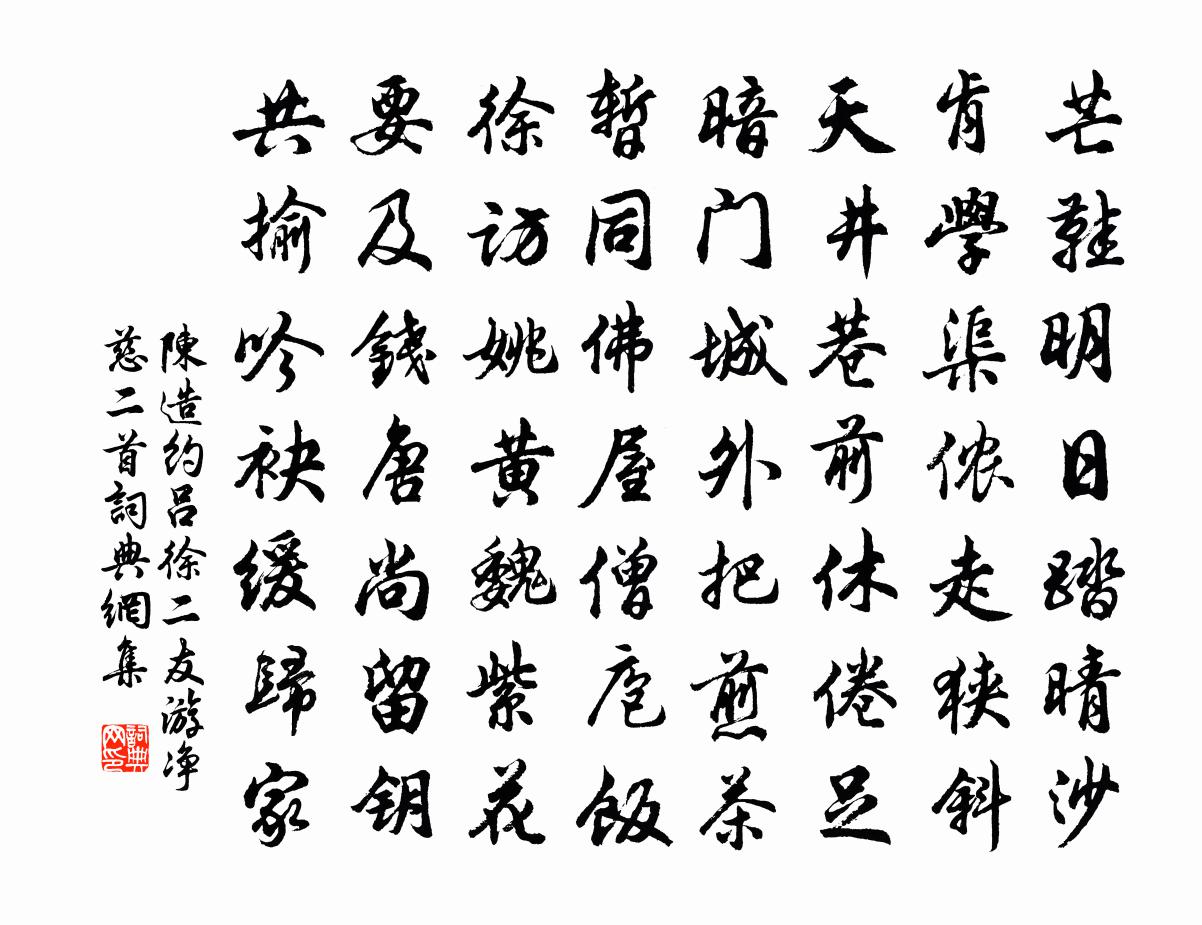 芒鞋明日踏晴沙
肯學渠侬走狹斜
天井巷前休倦足
暗门城外把煎茶
暫同佛屋僧庖饭
徐访姚黄魏紫花
要及錢唐尚留钥
共揄吟袂缓歸家
陳造约吕徐二友游净
慈二首詞典網集
詞典网印